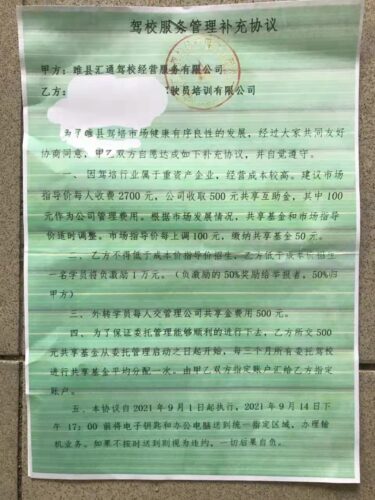 驾校服务管理补充协议
甲方：睢县汇通驾校经营服务有限公司
乙方：驶员培训有限公司
为了睢县驾培市场健康有序良性的发展，经过大家共同友好
协商同意，甲乙双方自愿达成如下补充协议，并自觉遵守。
一、因驾培行业属于重资产行业，经营成本较高。建议市场
指导价每人收费2700元，公司收取500元共享互助金，其中100
元作为公司管理费用。根据市场发展情况，共享基金和市场指导
价适时调整。市场指导价每上调100元，缴纳共享基金50元。
二、乙方不得低于成本价指导价招生，乙方低于成本价招生
一名学员将负激励1万元。（负激励的50%奖励给举报者，50%归
甲方）
三、外转学员每人交管理公司共享金费用500元。
四、为了保证委托管理能够顺利的进行下去，乙方所交500
元共享基金从委托管理启动之日起开始，每三个月所有委托驾校
进行共享基金平均分配一次。由甲乙双方指定账户汇给乙方指定
账户。
五、本协议自2021年9月1日起执行，2021年9月14日下
午17：00前将电子钥匙和办公电脑送到统一指定区域，办理输
机业务。如果不按时送到则视为违约，一切后果自负。